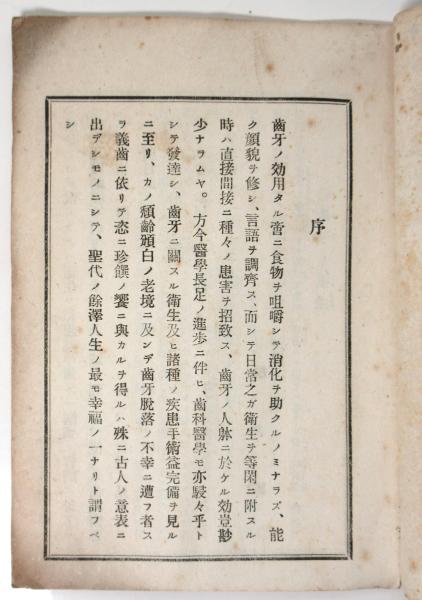 序
齒牙ノ効用タル啻ニ食物ヲ咀嚼シテ消化ヲ助クルノミナラズ、能
ク顔貌ヲ修シ、言語ヲ調齊ス、而シテ日常之ガ衛生ヲ等閑ニ附スル
時ハ直接間接ニ種々ノ患害ヲ招致ス、齒牙ノ人躰ニ於ケル効豈尠
少ナラムヤ。方今醫學長足ノ進歩ニ伴ヒ、齒科醫學モ亦駸々乎ト
シテ發達シ、齒牙ニ關スル衛生及ヒ諸種ノ疾患手術益完備ヲ見ル
ニ至リ、カノ頽齡頭白ノ老境ニ及ンデ齒牙脫落ノ不幸ニ遭フ者ス
ラ義齒ニ依リテ恣ニ珍饌ノ饗ニ與カルヲ得ルハ殊ニ古人ノ意表ニ
出デシモノニシテ、聖代ノ餘澤人生ノ最モ幸福ノ一ナリト謂フベ
シ